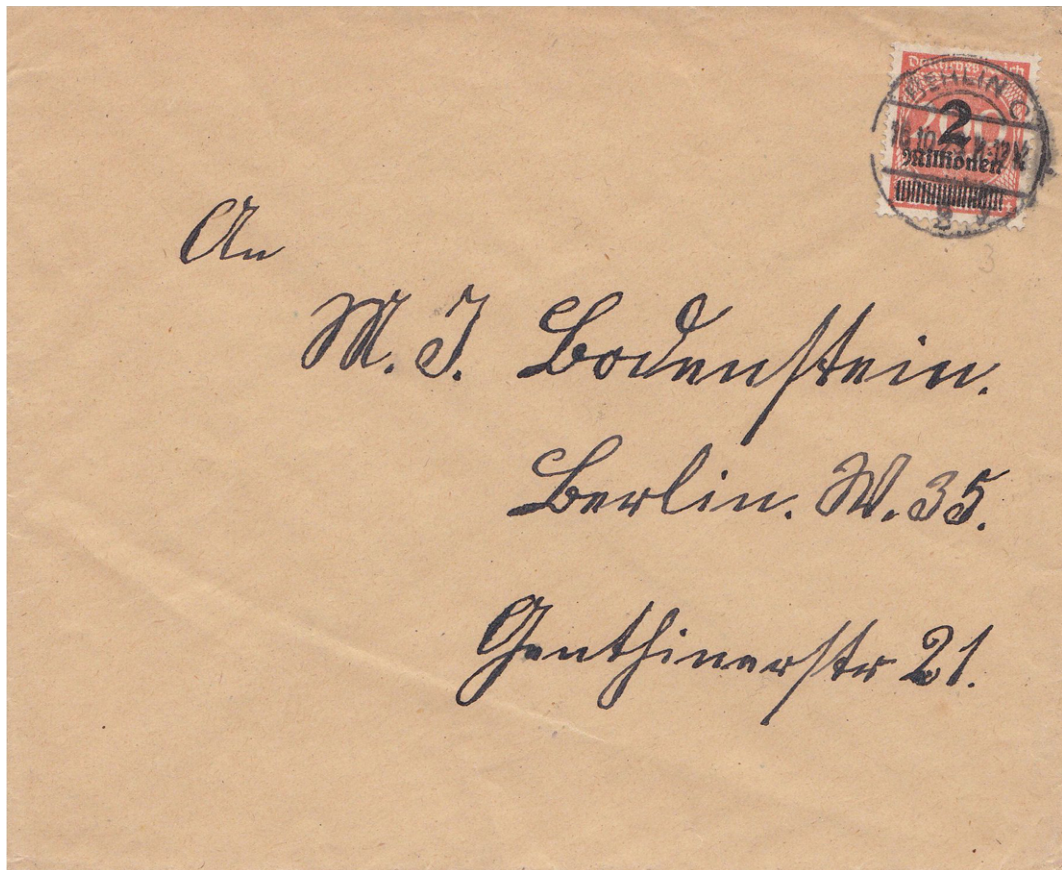 Deutsches Reich
BERLIN C
200
2
Millionen
An
M. J. Bodenstein.
Berlin. W. 35.
Genthinerstr 21.
3